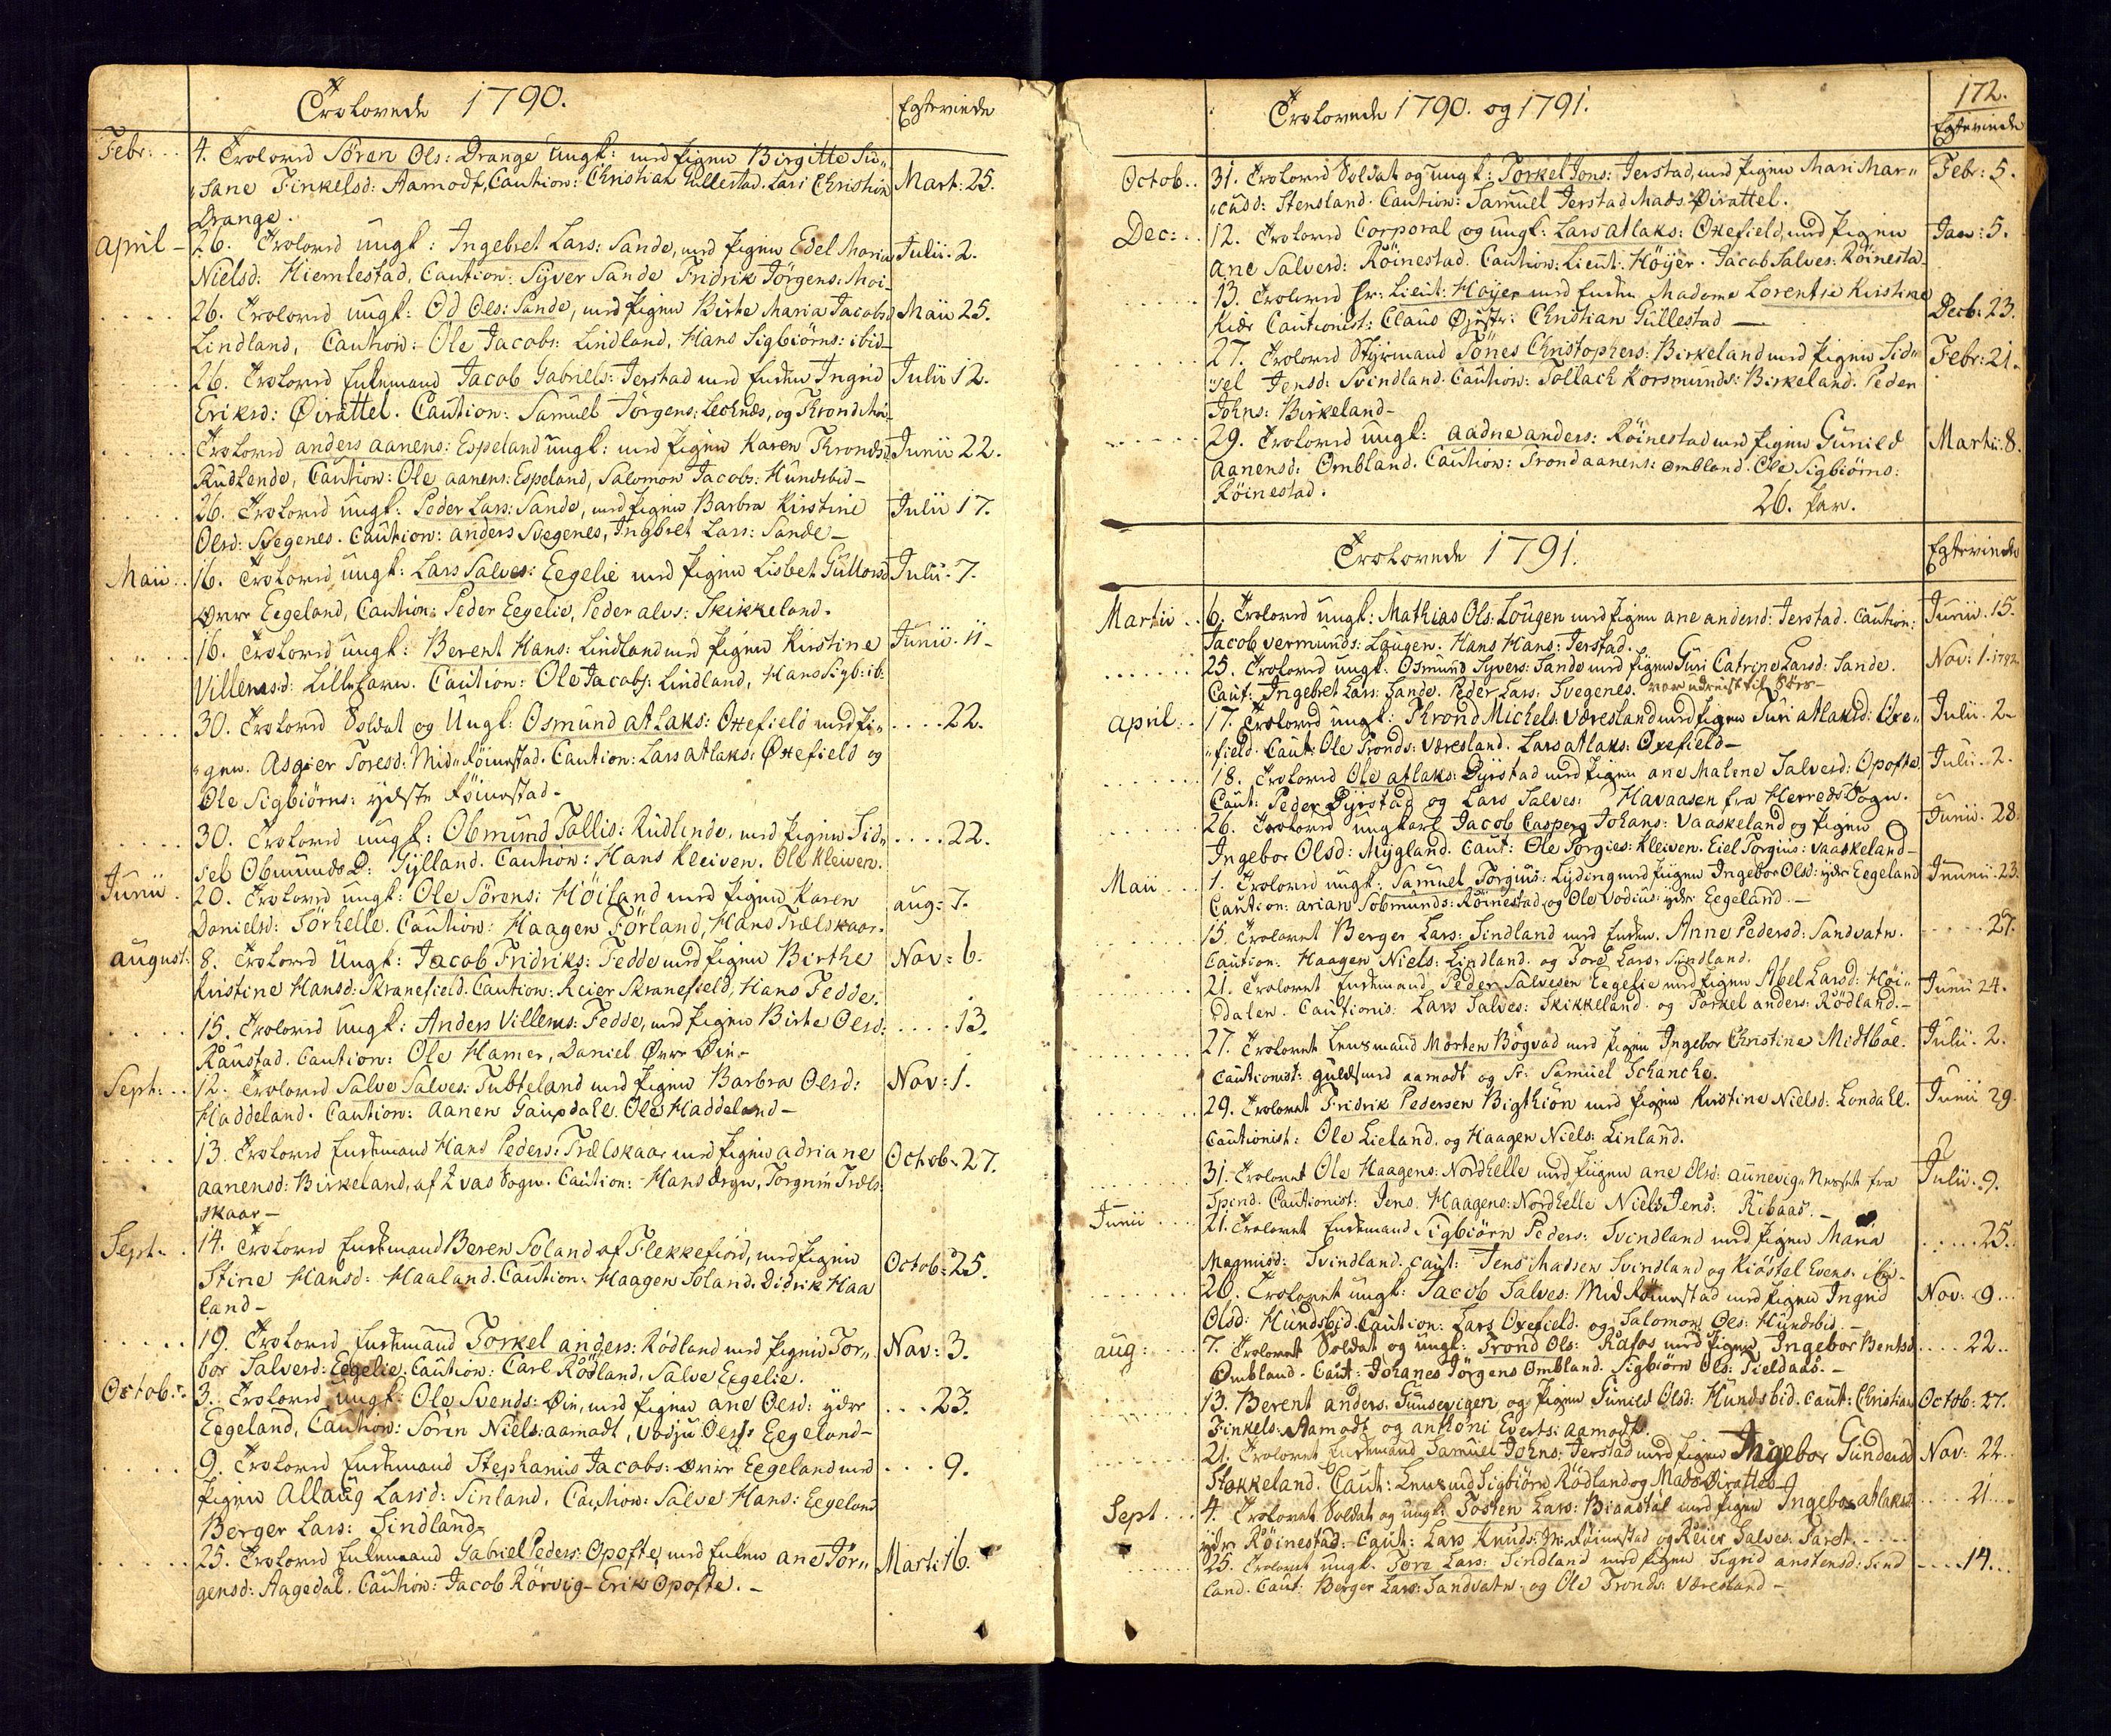 Trolovede 1790. Egteviede
Febr: 4. Trolovd Sören Ols: Drange Ungk: med Pigen Birgitte Su-
sane Finkelsd: Aamodt, Caution: Christian Gullestad. Lars Christian Mart: 25.
Drange.
April 26. Trolovd ungk: Ingebret Lars: Sande, med Pigen Edel Maria Julii 2.
Nielsd: Hiemlestad, Caution: Syver Sande Fridrik Jörgens: Moi-
26. Trolovd ungk: Od Ols: Sande, med Pigen Birte Maria Jacobsd Maii 25.
Lindland, Caution: Ole Jacobs: Lindland, Hans Sigbiörns: ibid-
26. Trolovd Enkemand Jacob Gabriels: Jerstad med Enken Ingrid Julii 12.
Eriksd: Øirattel. Caution: Samuel Jörgens: Lechnes, og Thrond Moi-
Trolovd anders aanens: Espeland ungk: med Pigen Karen Throndsd Junii 22.
Rudlende, Caution: Ole aanens: Espeland, Salomon Jacobs: Hundsbid-
26. Trolovd ungk: Peder Lars: Sande, med Pigen Barbra Kirstine Julii 17.
Olsd: Svegenes. Caution: anders Svegenes, Ingbret Lars: Sande-
Maii 16. Trolovd ungk: Lars Salves: Eegelie med Pigen Lisbet Gullovsd Julii 7.
Øvre Eegeland, Caution: Peder Eegelie, Peder alvs: Skikkeland.
16. Trolovd ungk: Berent Hans: Lindland med Pigen Kirstine Junii 11-
Villemsd: Lillehavn. Caution: Ole Jacobs: Lindland, Hans Sigb: ib:
30. Trolovd Soldat og Ungk: Osmund Atlaks: Oxefield med Pi- 22.
gen. Asgier Toresd: Mid Röinestad. Caution: Lars Atlaks: Øxefield og
Ole Sigbiörns: ydste Röinestad-
30. Trolovd ungk: Obmund Tallis: Rudlende, med Pigen Sid- 22.
sel Obmunds D: Gylland. Caution: Hans Kleiven. Ole Kleiven.
Junii 20. Trolovd ungk: Ole Sörens: Höiland med Pigen Karen aug: 7.
Danielsd: Sörhelle. Caution: Haagen Förland, Hans Trælskaar.
august: 8. Trolovd Ungk: Jacob Fridriks: Fedde med Pigen Birthe Nov: 6.
Kristine Hansd: Skranefield. Caution: Reier Skranefield, Hans Fedde.
15. Trolovd Ungk: Anders Villems: Fedde, med Pigen Birte Olsd: 13.
Raustad. Caution: Ole Hamer, Daniel Øvre Øie-
Sept: 12. Trolovd Salve Salves: Tubteland med Pigen Barbra Olsd: Nov: 1.
Haddeland. Caution: aanen Gaupdahl. Ole Haddeland-
13. Trolovd Enkemand Hans Peders: Trælskaar med Pigen adriane Octob: 27.
aanensd: Birkeland, af Qvas Sogn. Caution: Hans Ørgn, Torgrim Træls-
skaar-
Sept: 14. Trolovd Enkemand Beren Soland af Flekkefiord, med Pigen Octob: 25.
Stine Hansd: Haaland. Caution: Haagen Soland. Didrik Haa
land-
19. Trolovd Enkemand Torkel anders: Rödland med Pigen Tor- Nov: 3.
bor Salvesd: Eegelie. Caution: Carl Rödland, Salve Eegelie.
Octob: 3. Trolovd ungk: Ole Svends: Øie, med Pigen ane Olsd: ydre 23.
Eegeland, Caution: Sören Niels: aamodt, Vodju Olss: Eegeland-
9. Trolovd Enkemand Stephanus Jacobs: Øvre Eegeland med 9.
Pigen Allaug Larsd: Sinland, Caution: Salve Hans: Eegeland
Berger Lars: Sindland.
25. Trolovd Enkemand Gabriel Peders: Opofte, med Enken ane Tör- Mart: 16.
gensd: Aagedal. Caution: Jacob Rörvig- Erik Opofte.-
172.
Trolovede 1790. og 1791. Egteviede
Octob: 31. Trolovd Soldat og ungk: Torkel Jons: Jerstad, med Pigen Mari Mar- Febr: 5.
cusd: Stensland. Caution: Samuel Jerstad Mads Øirattel.
Dec: 12. Trolovd Corporal og ungk: Lars Atlaks: Oxefield, med Pigen Jan: 5.
Ane Salvesd: Röinestad. Caution: Lieut: Höyer. Jacob Salves: Röinesta-
13. Trolovd Hr: Lieut: Höyer med Enken Madame Lorentze Kirstine Decb: 23.
Kier Cautionist: Claus Christian Gullestad-
27. Trolovd Styrmand Tönes Christophers: Birkeland med Pigen Sid- Febr: 21.
sel Jensd: Svindland. Caution: Tollach Korsmunds: Birkeland. Peder
Johns: Birkeland-
29. Trolovd ungk: Aadne anders: Röinestad med Pigen Gunild Martii: 8.
Aanensd: Ombland. Caution: Trond aanens: Ombland. Ole Sigbiörns:
Röinestad.
26. Par.
Trolovede 1791. Egteviede
Martii 6. Trolovd ungk: Mathias Ols: Lougen med Pigen ane andersd: Jerstad. Caution: Junii 15.
Jacob Vermunds: Laugen. Hans Hans: Jerstad.
25. Trolovd ungk: Osmund Syvers: Sande med Pigen Guri Catrine Larsd: Sande. Nov: 1. 1792
Caut: Ingebret Lars: Sande. Peder Lars: Svegenes. var udreist til Söes-
April 17. Trolovd ungk: Thrond Michels: Væresland med Pigen Juri Atlaksd: Oxe- Julii 2.
field. Caut: Ole Tronds: Væresland. Lars Atlaks: Oxefield-
18. Trolovd Ole atlaks: Dyrstad med Pigen ane Malene Salvesd: Opofte. Julii 2.
Caut: Peder Dyrstad og Lars Salves: Havaasen fra Herreds Sogn.
26. Trolovd ungkarl Jacob Casper Johans: Vaaskeland og Pigen Junii 28.
Ingebor Olsd: Mygland. Caut: Ole Torgies: Kleiven. Eiel Torgius: Vaaskeland-
Maii 1. Trolovd ungk: Samuel Torgius: Lyding med Pigen Ingebor Olsd: ydre Eegeland Junii 23.
Caution: arian Sobmunds: Röinestad og Ole Vodius: ydre Eegeland.-
15. Trolovet Berger Lars: Sindland med Enken. Anne Pedersd: Sandvatn. 27.
Caution: Haagen Niels: Lindland. og Tore Lars: Sindland.
21. Trolovet Enkemand Peder Salvesen Eegelie med Pigen Abel Larsd: Höi- Junii 24.
dalen. Cautionis: Lars Salves: Skikkeland. og Torkel anders: Rödland.-
27. Trolovet Lensmand Morten Bögvad med Pigen Ingebor Christine Midtböe. Julii 2.
Cautionist: Guldsmed aamodt og Sr: Samuel Schancke.
29. Trolovet Fridrik Pedersen Bigthiön med Pigen Kirstine Nielsd: Londahl. Junii 29.
Cautionist: Ole Lieland. og Haagen Niels: Linland.
31. Trolovet Ole Haagens: Nordhelle med Pigen ane Olsd: aunevig Nesset fra Julii 9.
Spind. Cautionist: Jens Haagens: Nordhelle Niels Jens: Ribaas.-
Junii 21. Trolovet Enkemand Sigbiörn Peders: Svindland med Pigen Maria 25.
Magnusd: Svindland. Caut: Jens Madsen Svindland og Kiöstel Evens. ibi-
26. Trolovet ungk: Jacob Salves: Mid Röinestad med Pigen Ingrid Nov: 9
Olsd: Hundsbid. Caution: Lars Oxefield. og Salomon Ols: Hundsbid.-
aug: 7. Trolovet Soldat og ungk: Trond Ols: Rafos med Pigen Ingebor Bentsd 22.
Ombland. Caut: Johanes Jörgens Ombland. Sigbiörn Ols: Fieldaas.-
13. Berent anders. Gunsevigen og Pigen Gunild Olsd: Hundsbid. Caut: Christian Octob: 27.
Finkels: Aamodt og anthoni Everts: aamodt.
21. Trolovet Enkemand Samuel Johns: Jerstad med Pigen Ingebor Gundersd Nov: 22.
Stokkeland. Caut: Lensmd Sigbiörn Rödland og Mads Øirattel
Sept 4. Trolovet Soldat og ungk: Tosten Lars: Braastal med Pigen Ingebor atlaksd 21.
ydre Röinestad. Caut: Lars Knuds: Röinestad og Reier Salves:
25. Trolovet ungk: Tore Lars: Sindland med Pigen Sigrid anstensd: Sind 14.
land. Caut: Berger Lars: Sandvatn. og Ole Tronds: Væresland-